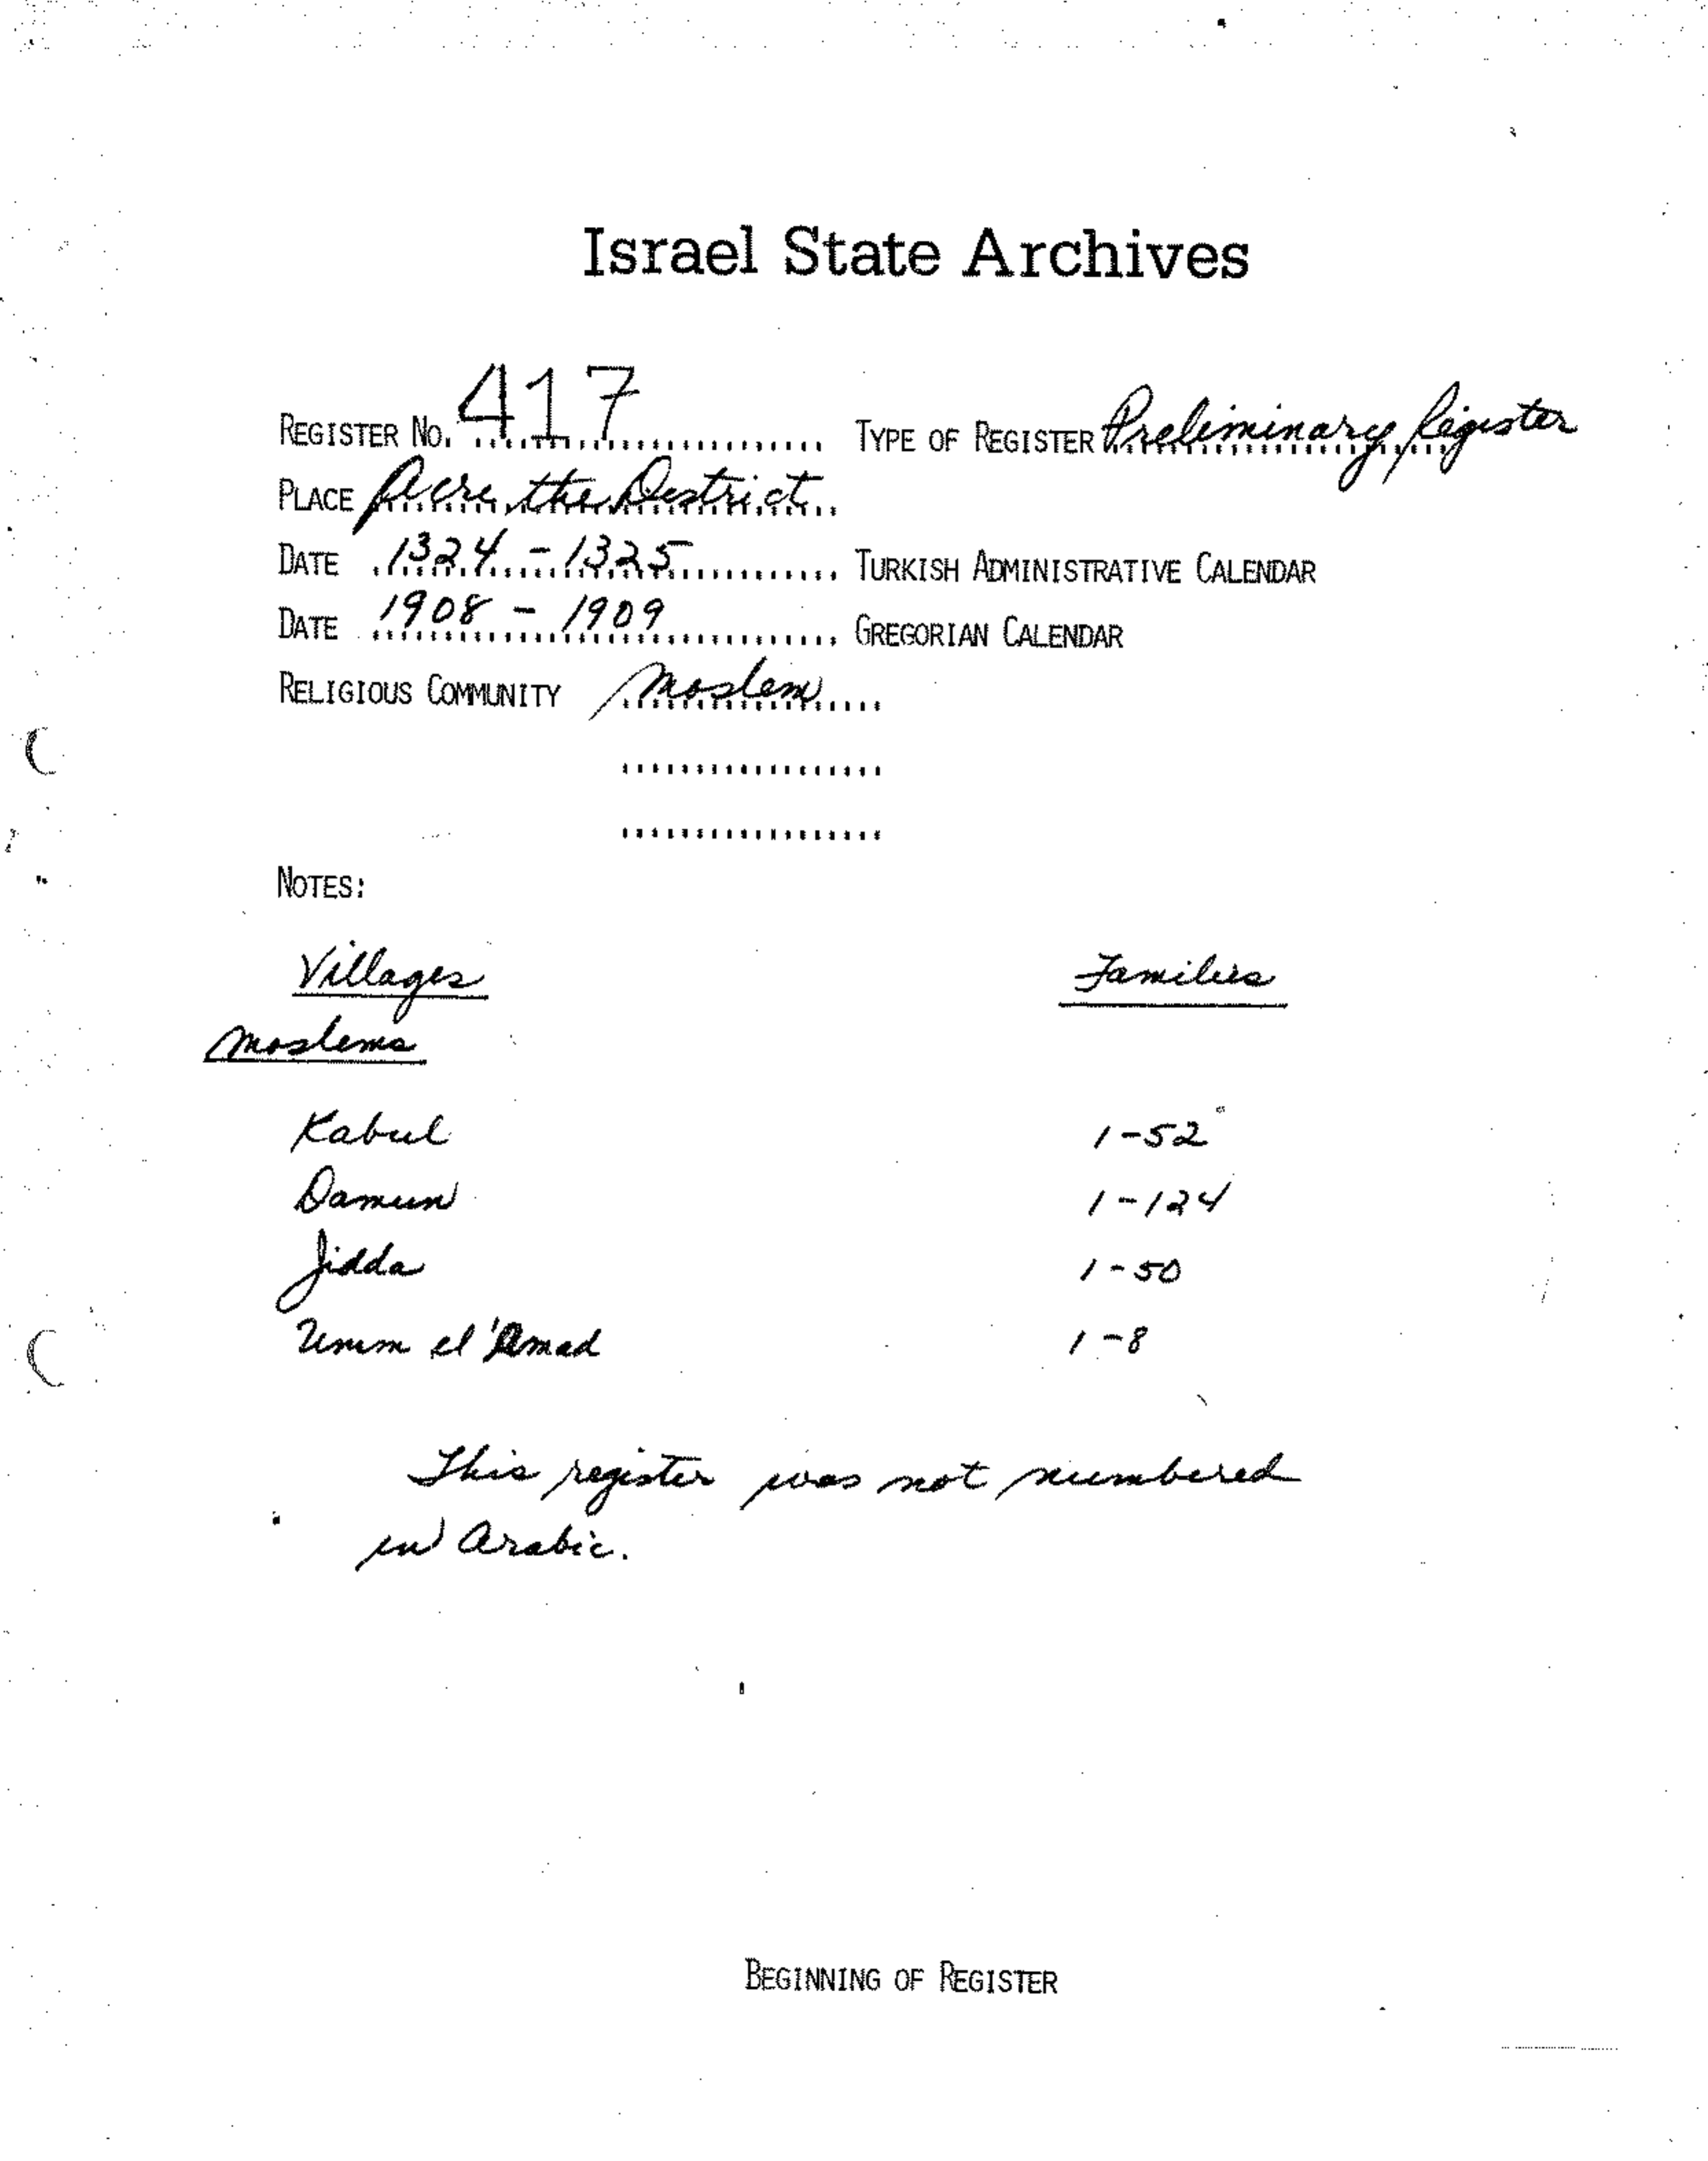 Israel State Archives
REGISTER NO. 417 TYPE OF REGISTER Preliminary Register
PLACE Acre, the District
DATE 1324 - 1325 TURKISH ADMINISTRATIVE CALENDAR
DATE 1908 - 1909 GREGORIAN CALENDAR
RELIGIOUS COMMUNITY Moslem
NOTES:
Villages Families
Moslems
Kabul 1-52
Damun 1-124
Jidda 1-50
Umm el 'Amad 1-8
This register was not numbered
in Arabic.
BEGINNING OF REGISTER